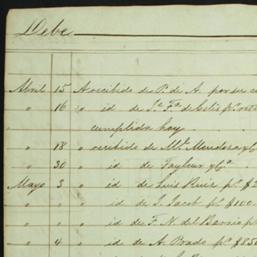 Debe
Abril 15 A recibido de P. de A. por su
" 16 " id de Jª Fª de Solis pr
cumplida hoy
" 18 " recibido de Mr. Mendoza y Cª
" 30 " id de Tayleur y Cª
Mayo 3 " id de Luis Ruiz pr $
" " " id de J. Jacob pr $100
" " " id de F. N. del Barrio pr
" 4 " id de A. Prado pr $850